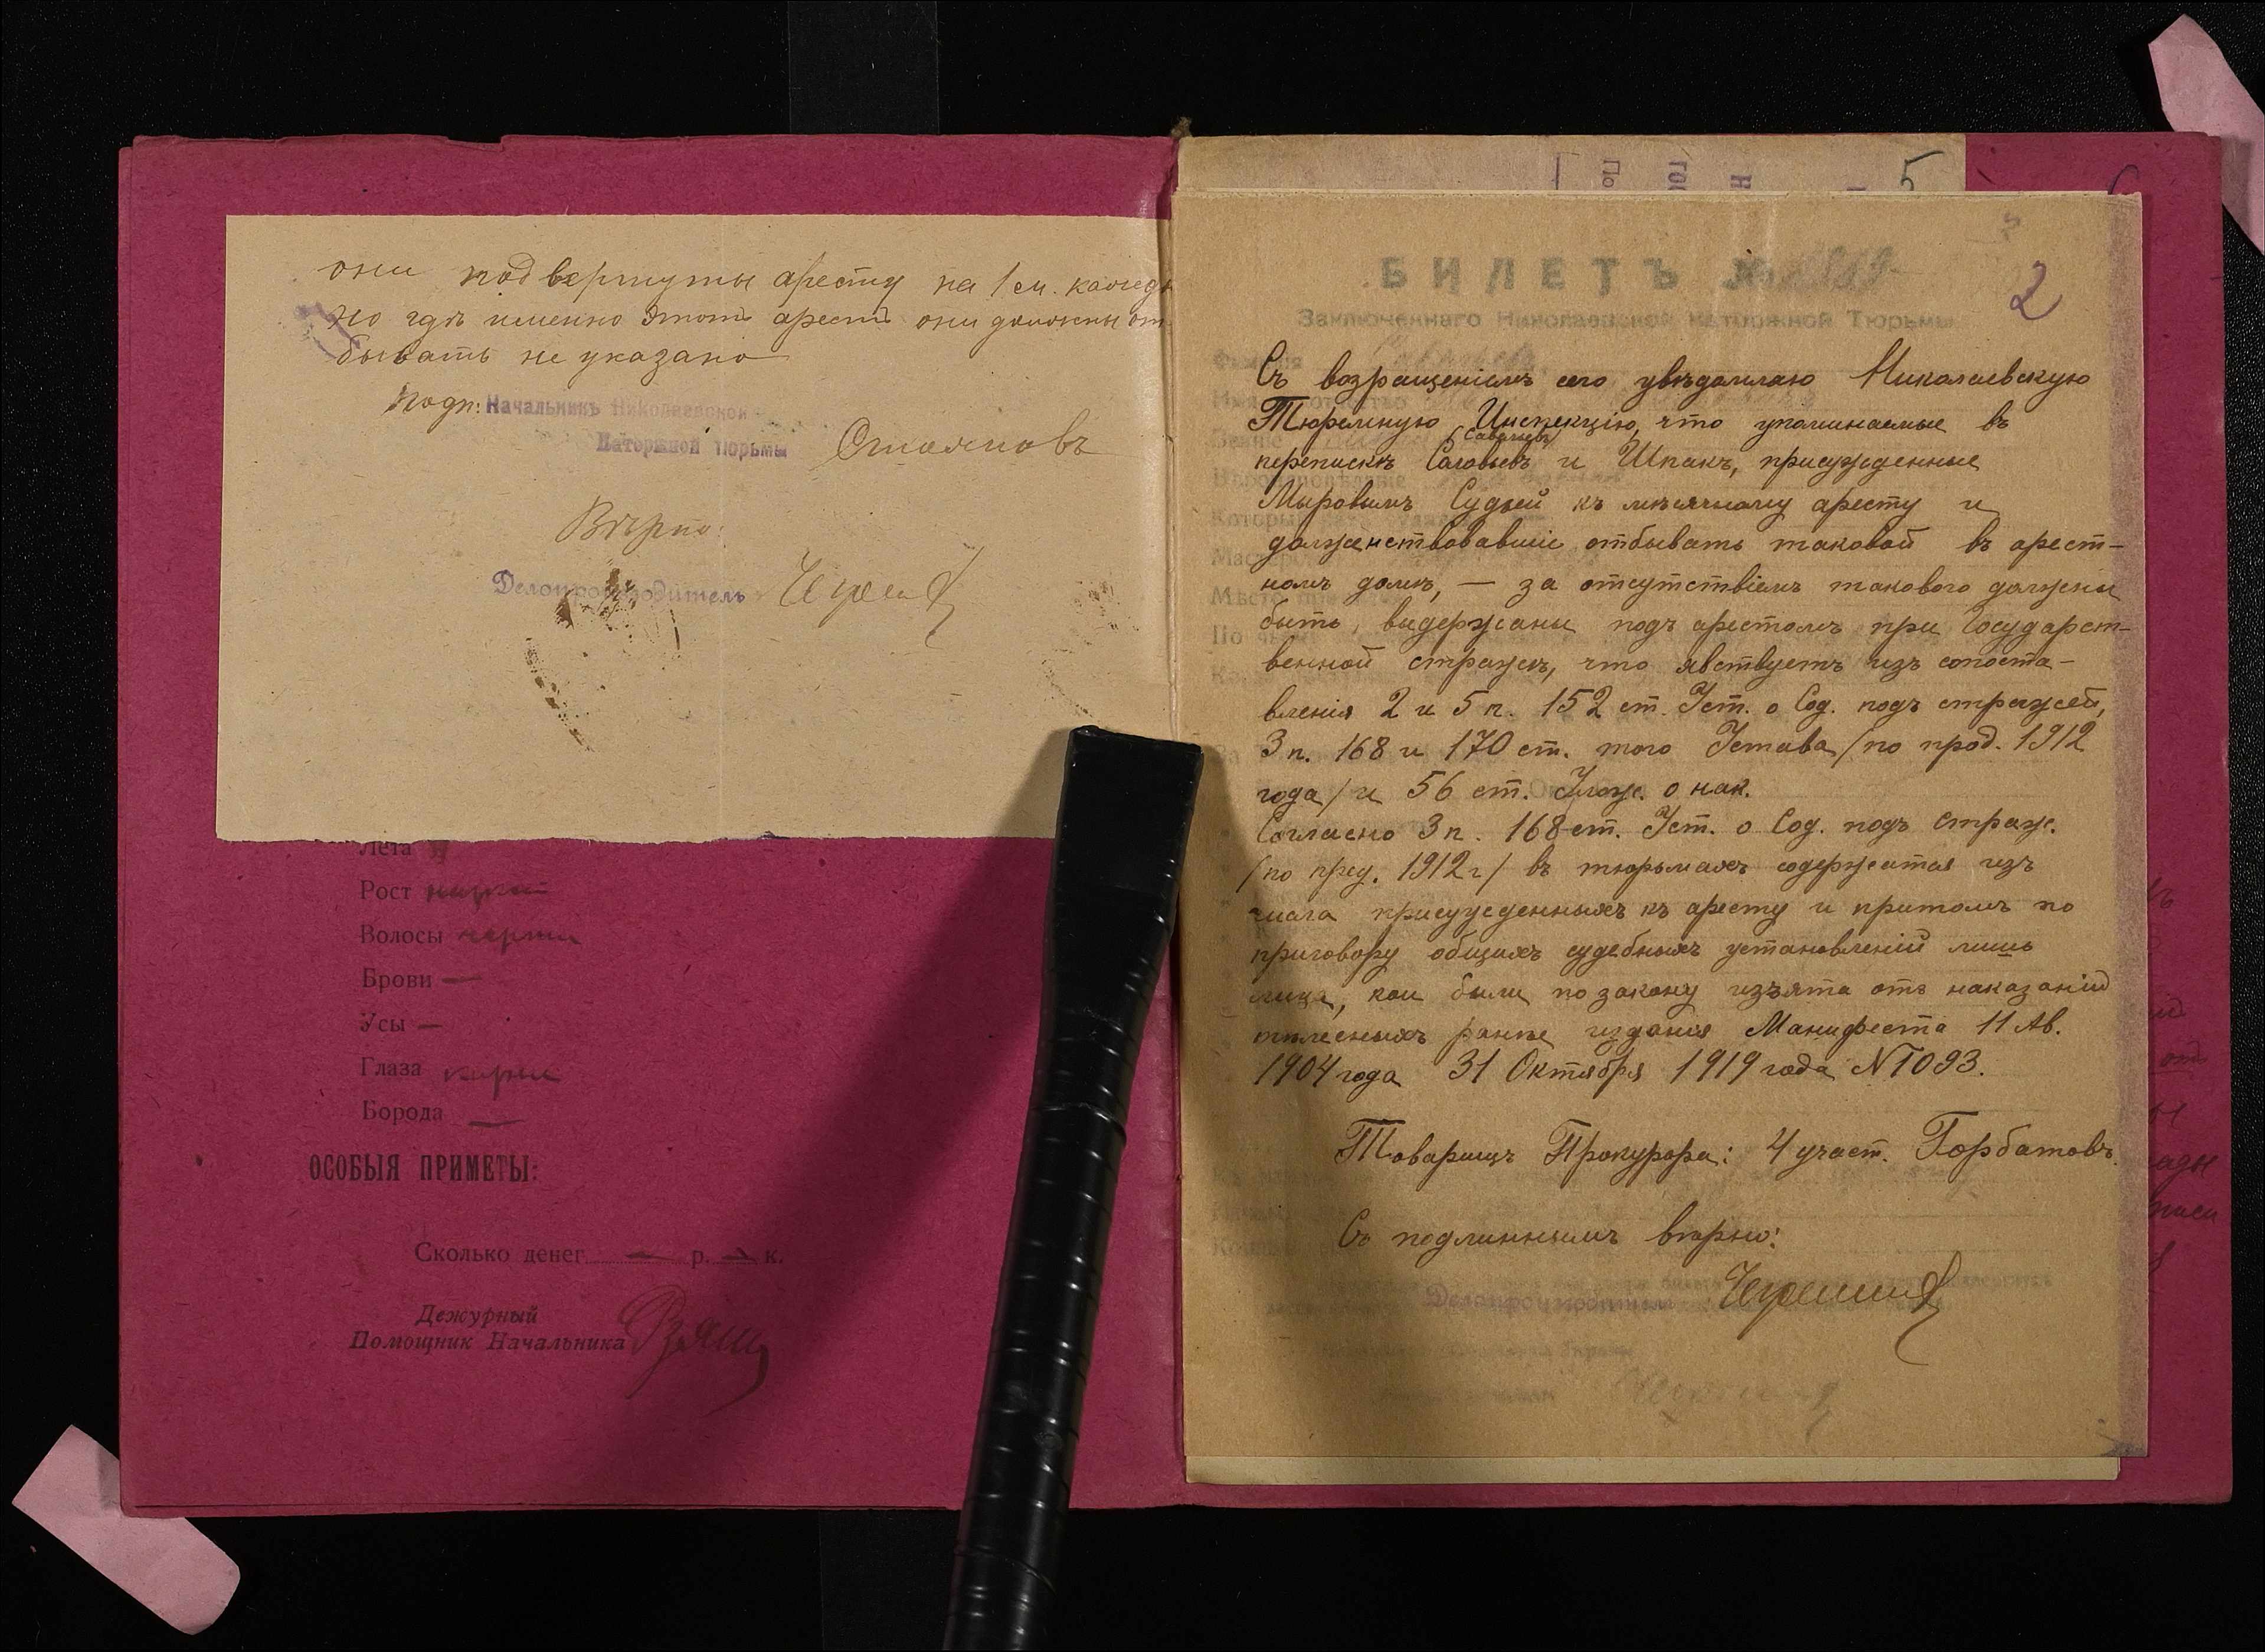 они подвергнуты аресту на 1 м. каждый
но где именно этот арест они должны от
бывать не указано
подп: Начальникъ Николаевской
Каторжной Тюрьмы Стояновъ
Вѣрно:
Делопроизводитель
Лета
Рост
Волосы черные
Брови —
Усы —
Глаза карие
Борода —
ОСОБЫЯ ПРИМЕТЫ:
Сколько денег — р. — к.
Дежурный
Помощник Начальника
5
2
БИЛЕТЪ №
Заключеннаго Николаевской каторжной Тюрьмы
Съ возращеніемъ сего увѣдомляю Николаевскую
Тюремную Инспекцію, что упоминаемые въ
(Савельевъ)
перепискѣ Соловьевъ и Шпакъ, присужденные
Мировымъ Судьей къ мѣсячному аресту и
долженствовавшіе отбывать таковой въ арест-
номъ домѣ, — за отсутствіемъ такового должны
быть выдержаны подъ арестомъ при Государст-
венной стражѣ, что явствуетъ изъ сопоста-
вленія 2 и 5 п. 152 ст. Уст. о Сод. подъ стражей,
3 п. 168 и 170 ст. того Устава /по прод. 1912
года/ и 56 ст. Улож. о нак.
Согласно 3 п. 168 ст. Уст. о Сод. подъ страж.
/по прод. 1912 г/ въ тюрьмахъ содержатся изъ
числа присужденныхъ къ аресту и притомъ по
приговору общихъ судебныхъ установленій лишь
лица, кои были по закону изъяты отъ наказаній
тѣлесныхъ ранѣе изданія Манифеста 11 Ав.
1904 года 31 Октября 1919 года № 1093.
Товарищъ Прокурора: 4 участ. Горбатовъ.
Съ подлиннымъ вѣрно:
Делопроизводитель